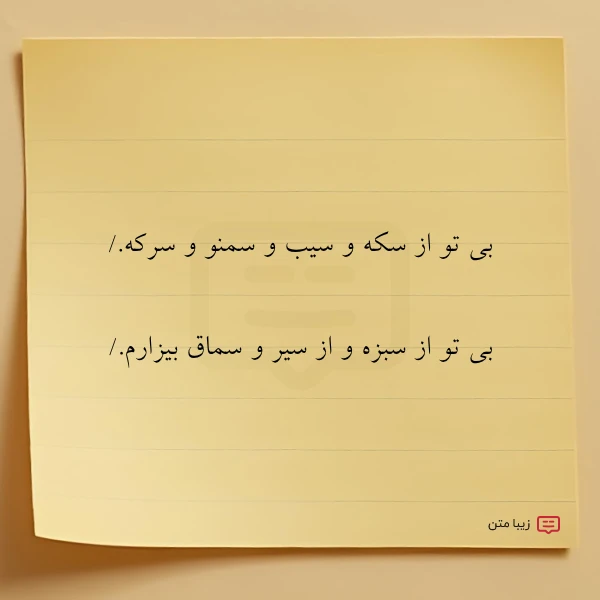 بی تو از سکه و سیب و سمنو و سرکه./
بی تو از سبزه و از سیر و سماق بیزارم./
زیبا متن